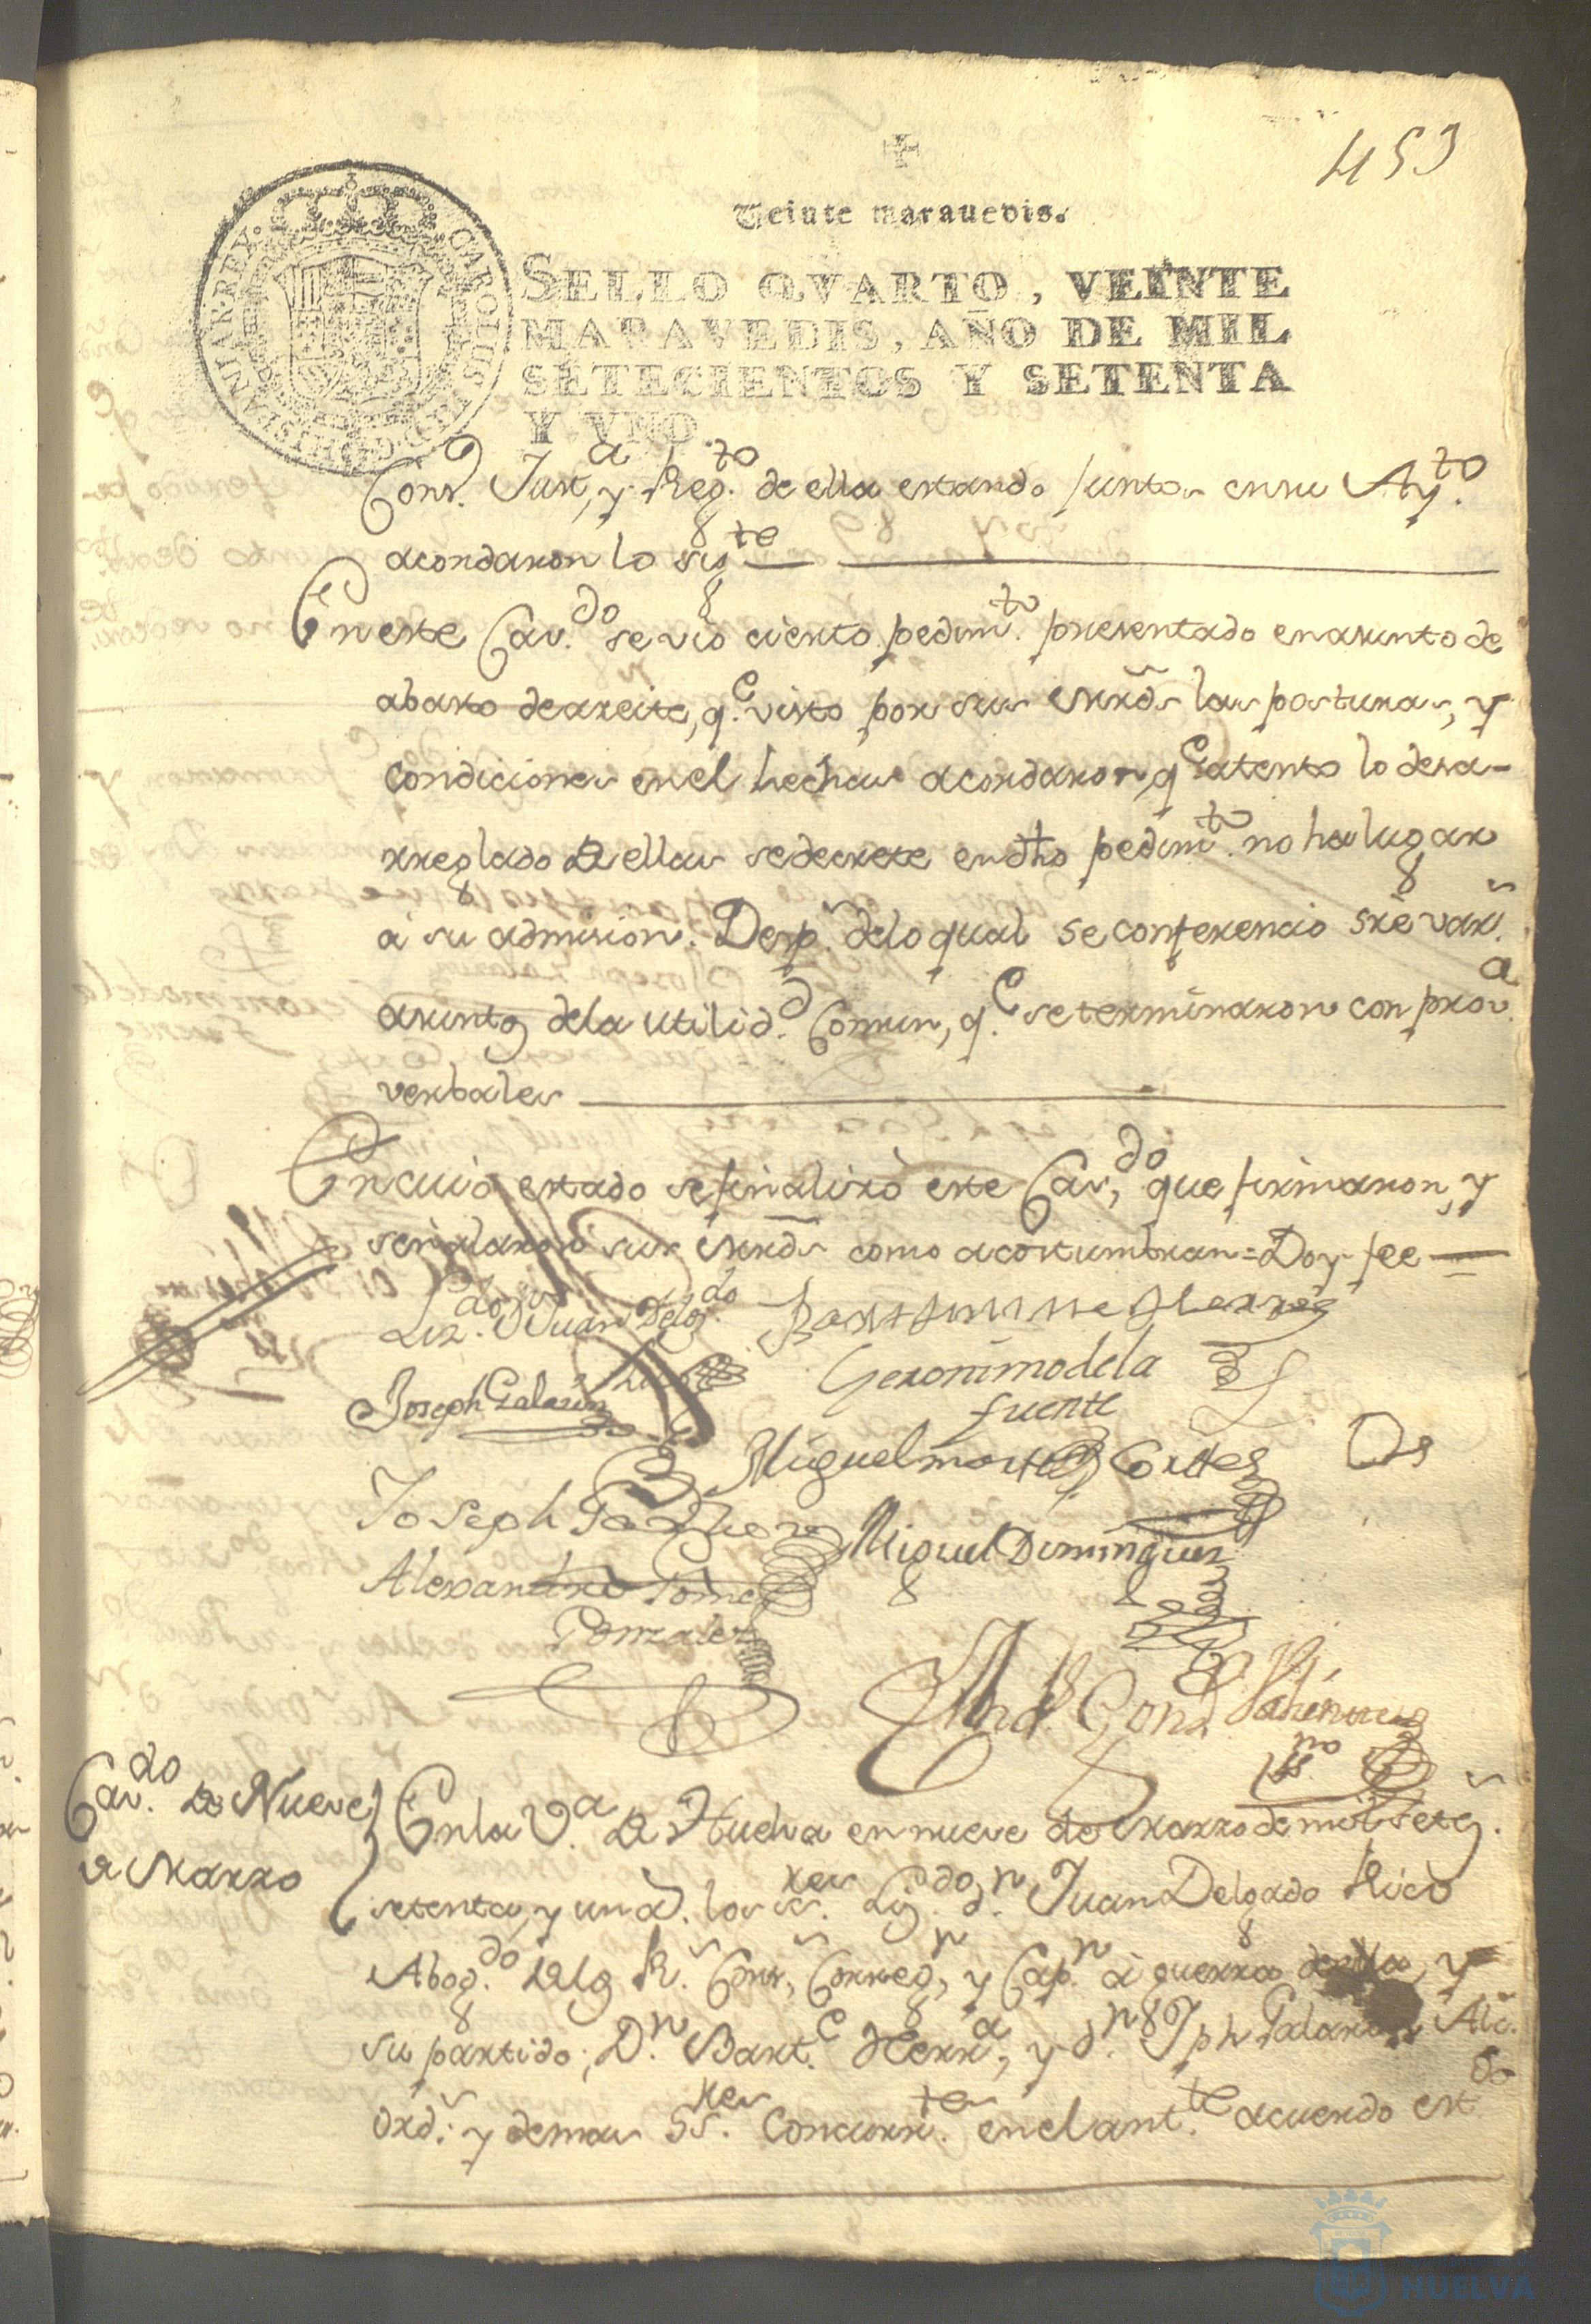 453
Veinte marauedis.
SELLO QVARTO, VEINTE
MARAVEDIS, AÑO DE MIL
SETECIENTOS Y SETENTA
Y VNO.
CAROLUS III D G HISPANIAR REX
Cons. Just.a, y Reg.to de ella estando juntos en su Ay.to
acordaron lo sig.te
En este Cav.do se vio cierto pedim.to presentado en asunto de
abasto de azeite, q.e visto por sus mrds las posturas, y
condiciones en el hechas acordaron, q.e atento lo desa-
rreglado de ellas se decrete en dho pedim.to no ha lugar
a su admision. Desp.s de lo qual se conferencio sre var.s
asuntos de la utilid.d Comun, q.e se terminaron con prov.a
verbales
En cuio estado se finalizò este Cav.do que firmaron, y
señalaron sus mrds como acostumbran = Doy fee
Liz.do D.n Juan Delg.do
Rico
Bartholome Herrera
Joseph Galarin
Geronimo de la
fuente
Miguel Cortes
Joseph
Miguel Dominguez
Alexandro Gomez
Gonzalez
And.s Gonz.z
ss.no
Cav.do de Nueve
de Marzo
En la V.a de Huelva en nueve de Marzo de mil setez.s
setenta, y un a.s los ss.res Liz.do d.n Juan Delgado Rico
Abog.do de los R.s Cons.s, Correg.r, y Cap.n à guerra de ella, y
su partido, D.n Bart.e Herr.a, y d.n Jph Galarin Alc.s
ord.s y demas SS.res Concurr.tes en el ant.te acuerdo est.do
HUELVA